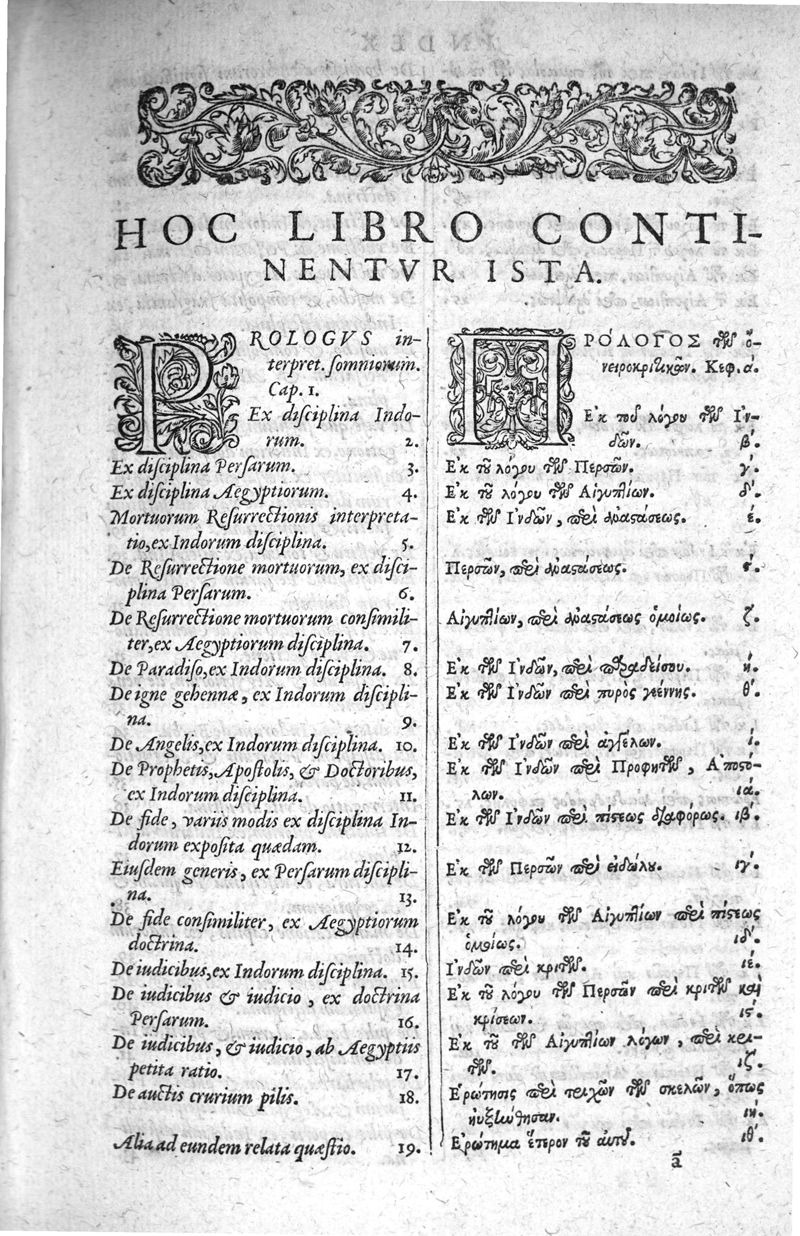 HOC LIBRO CONTI-
NENTVR ISTA.
PROLOGVS in-
terpret. somniorum.
Cap. 1.
Ex disciplina Indo-
rum. 2.
Ex disciplina Persarum. 3.
Ex disciplina Aegyptiorum. 4.
Mortuorum Resurrectionis interpreta-
tio, ex Indorum disciplina. 5.
De Resurrectione mortuorum, ex disci-
plina Persarum. 6.
De Resurrectione mortuorum consimili-
ter, ex Aegyptiorum disciplina. 7.
De Paradiso, ex Indorum disciplina. 8.
De igne gehennæ, ex Indorum discipli-
na. 9.
De Angelis, ex Indorum disciplina. 10.
De Prophetis, Apostolis, & Doctoribus,
ex Indorum disciplina. 11.
De fide, variis modis ex disciplina In-
dorum exposita quædam. 12.
Eiusdem generis, ex Persarum discipli-
na. 13.
De fide consimiliter, ex Aegyptiorum
doctrina. 14.
De iudicibus, ex Indorum disciplina. 15.
De iudicibus & iudicio, ex doctrina
Persarum. 16.
De iudicibus, & iudicio, ab Aegyptiis
petita ratio. 17.
De auctis crurium pilis. 18.
Alia ad eundem relata quæstio. 19.
ΠΡΌΛΟΓΟΣ τῶν ὀ-
νειροκριτικῶν. Κεφ. ά.
Ἐκ τοῦ λόγου τῶν Ἰν-
δῶν. β΄.
Ἐκ τοῦ λόγου τῶν Περσῶν. γ΄.
Ἐκ τοῦ λόγου τῶν Αἰγυπτίων. δ΄.
Ἐκ τῶν Ἰνδῶν, περὶ ἀναστάσεως. έ.
Περσῶν, περὶ ἀναστάσεως. ϛ΄.
Αἰγυπτίων, περὶ ἀναστάσεως ὁμοίως. ζ΄.
Ἐκ τῶν Ἰνδῶν, περὶ παραδείσου. ή.
Ἐκ τῶν Ἰνδῶν περὶ πυρὸς γεέννης. θ΄.
Ἐκ τῶν Ἰνδῶν περὶ ἀγγέλων. ί.
Ἐκ τῶν Ἰνδῶν περὶ Προφητῶν, Ἀποστό-
λων. ιά.
Ἐκ τῶν Ἰνδῶν περὶ πίστεως διαφόρως. ιβ΄.
Ἐκ τῶν Περσῶν περὶ εἰδώλου. ιγ΄.
Ἐκ τοῦ λόγου τῶν Αἰγυπτίων περὶ πίστεως
ὁμοίως. ιδ΄.
Ἰνδῶν περὶ κριτῶν. ιέ.
Ἐκ τοῦ λόγου τῶν Περσῶν περὶ κριτῶν καὶ
κρίσεων. ιϛ΄.
Ἐκ τοῦ τῶν Αἰγυπτίων λόγων, περὶ κρι-
τῶν. ιζ΄.
Ἐρώτησις περὶ τριχῶν τῶν σκελῶν, ὅπως
ηὐξήνθησαν. ιή.
Ἐρώτημα ἕτερον τοῦ αὐτοῦ. ιθ΄.
ã